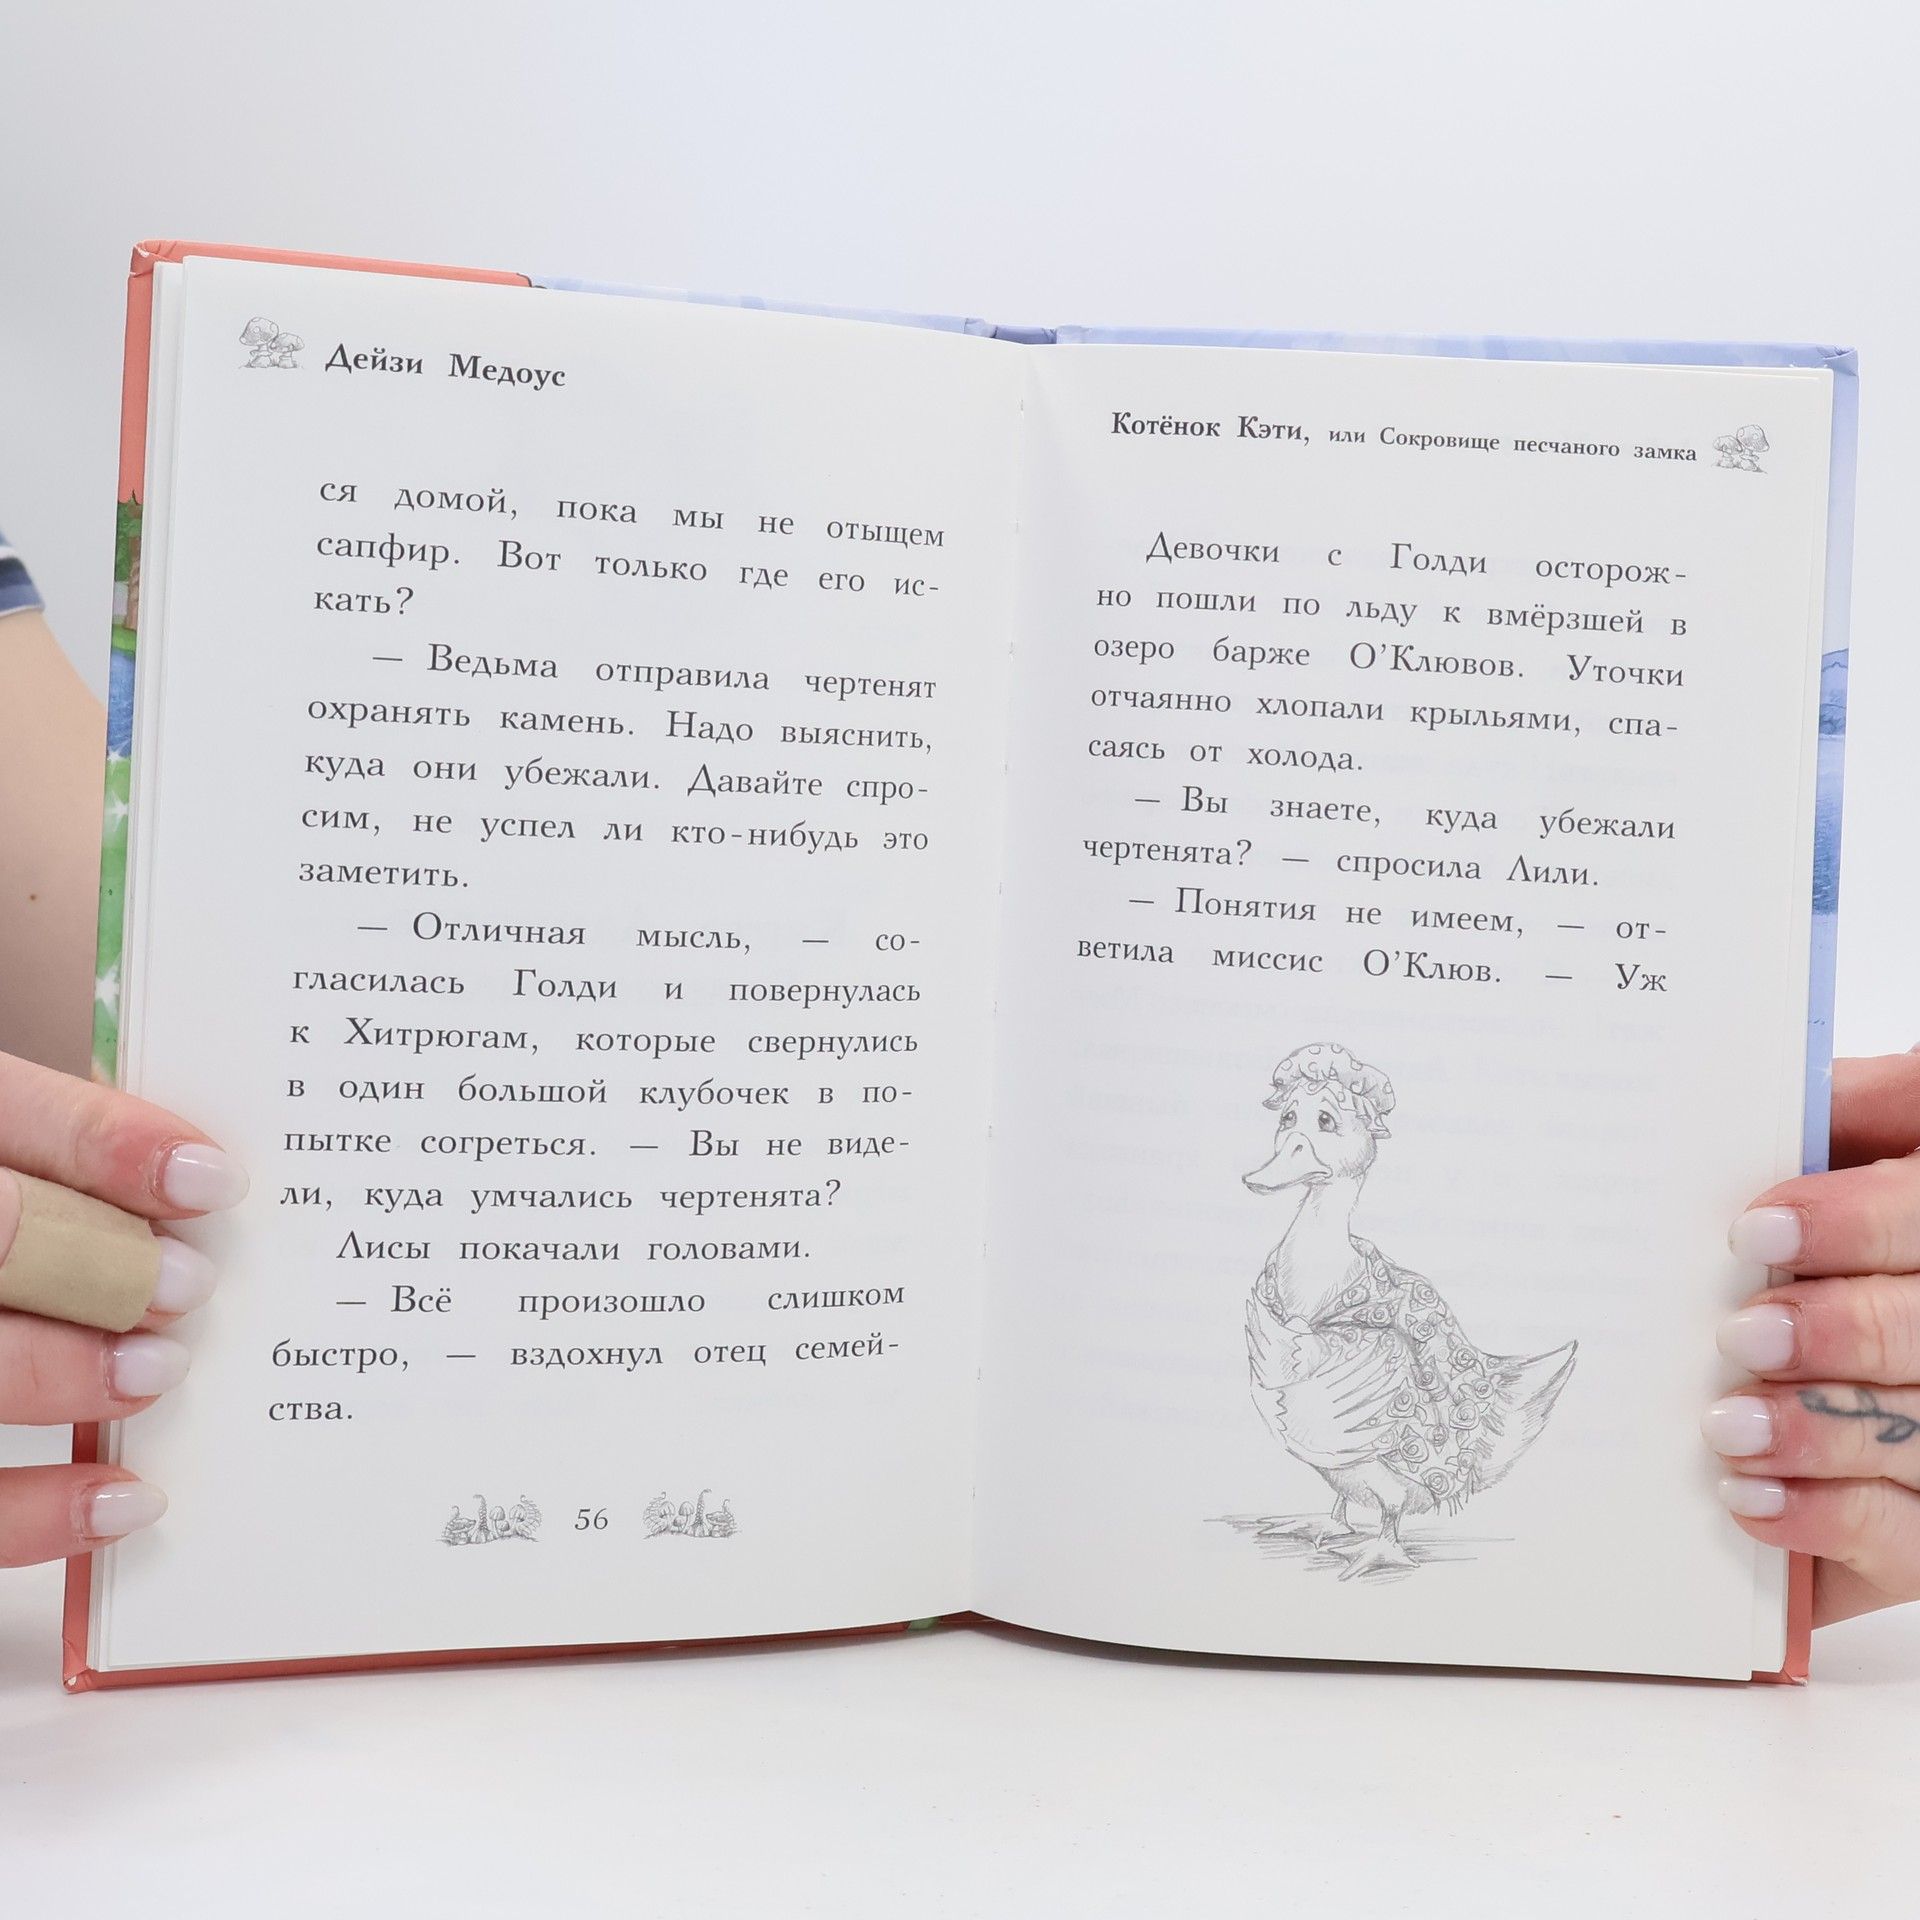 Дейзи Медоус
ся домой, пока мы не отыщем
сапфир. Вот только где его ис-
кать?
— Ведьма отправила чертенят
охранять камень. Надо выяснить,
куда они убежали. Давайте спро-
сим, не успел ли кто-нибудь это
заметить.
— Отличная мысль, — со-
гласилась Голди и повернулась
к Хитрюгам, которые свернулись
в один большой клубочек в по-
пытке согреться. — Вы не виде-
ли, куда умчались чертенята?
Лисы покачали головами.
— Всё произошло слишком
быстро, — вздохнул отец семей-
ства.
56
Котёнок Кэти, или Сокровище песчаного замка
Девочки с Голди осторож-
но пошли по льду к вмёрзшей в
озеро барже О’Клювов. Уточки
отчаянно хлопали крыльями, спа-
саясь от холода.
— Вы знаете, куда убежали
чертенята? — спросила Лили.
— Понятия не имеем, — от-
ветила миссис О’Клюв. — Уж